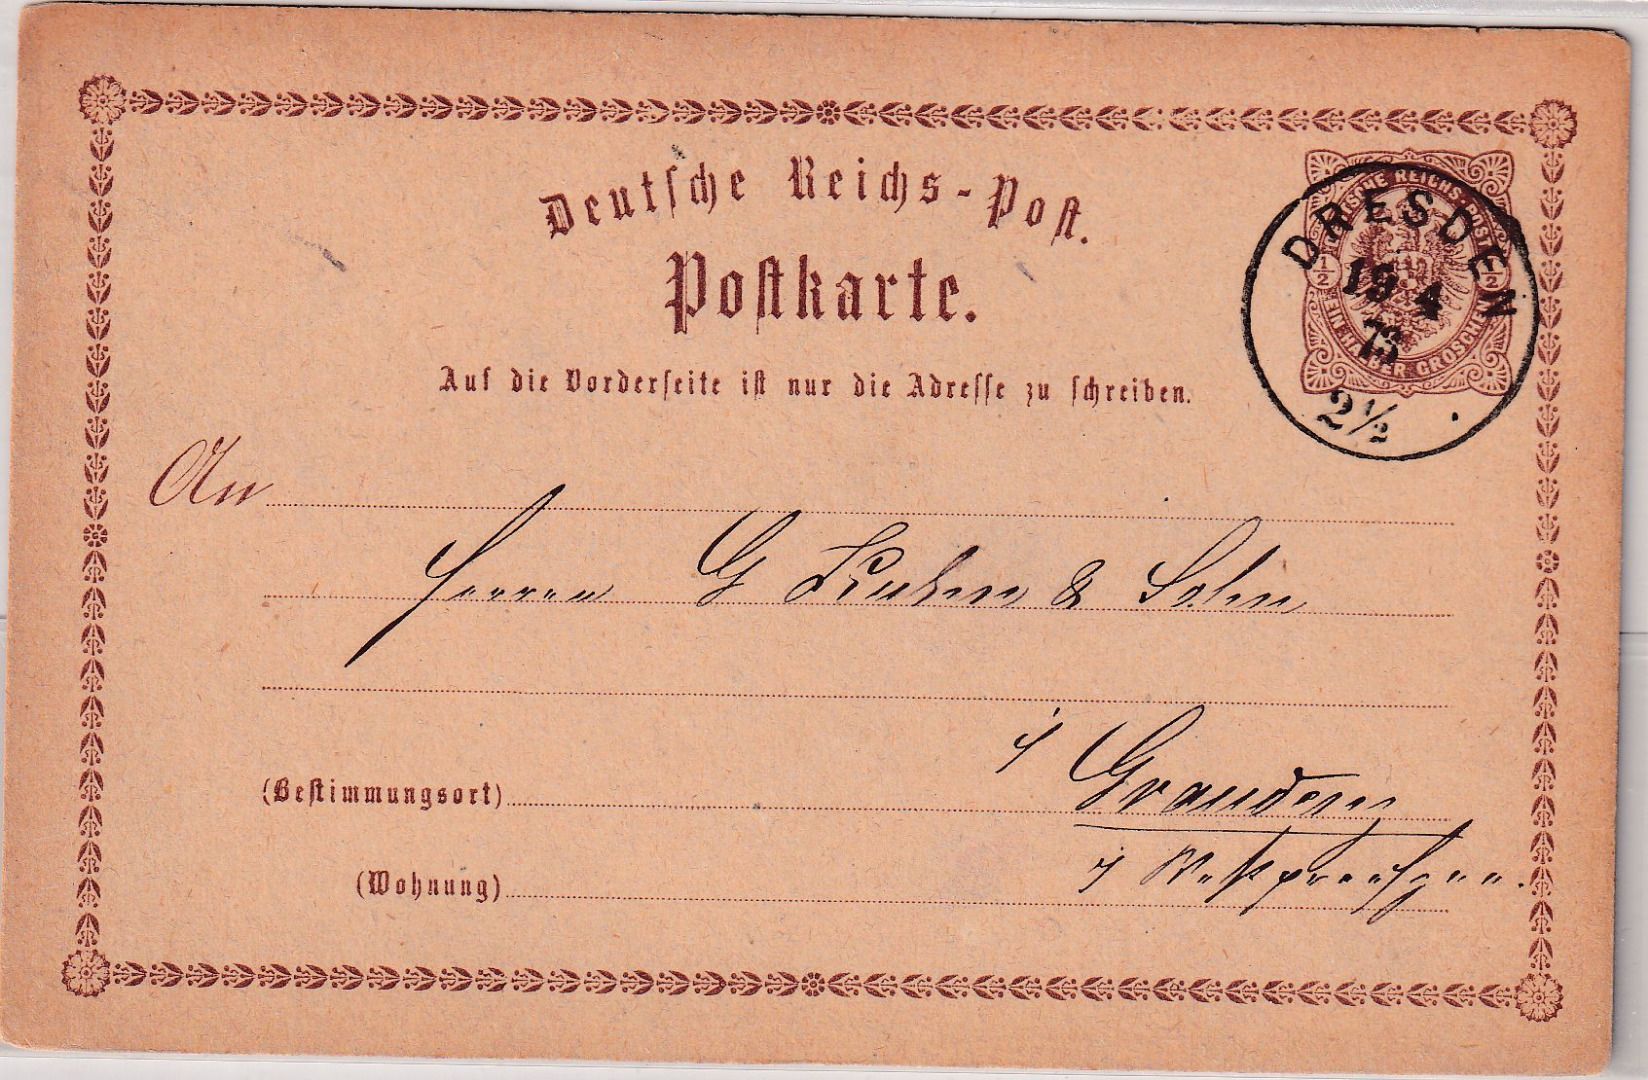 Deutsche Reichs-Post.
Postkarte.
Auf die Vorderseite ist nur die Adresse zu schreiben.
DEUTSCHE REICHS-POST
1/2
1/2
EIN HALBER GROSCHEN
DRESDEN
19 4
73
2 1/2
An
Herren G Kuhn & Sohn
(Bestimmungsort)
Graudenz
(Wohnung)
Westpreußen.